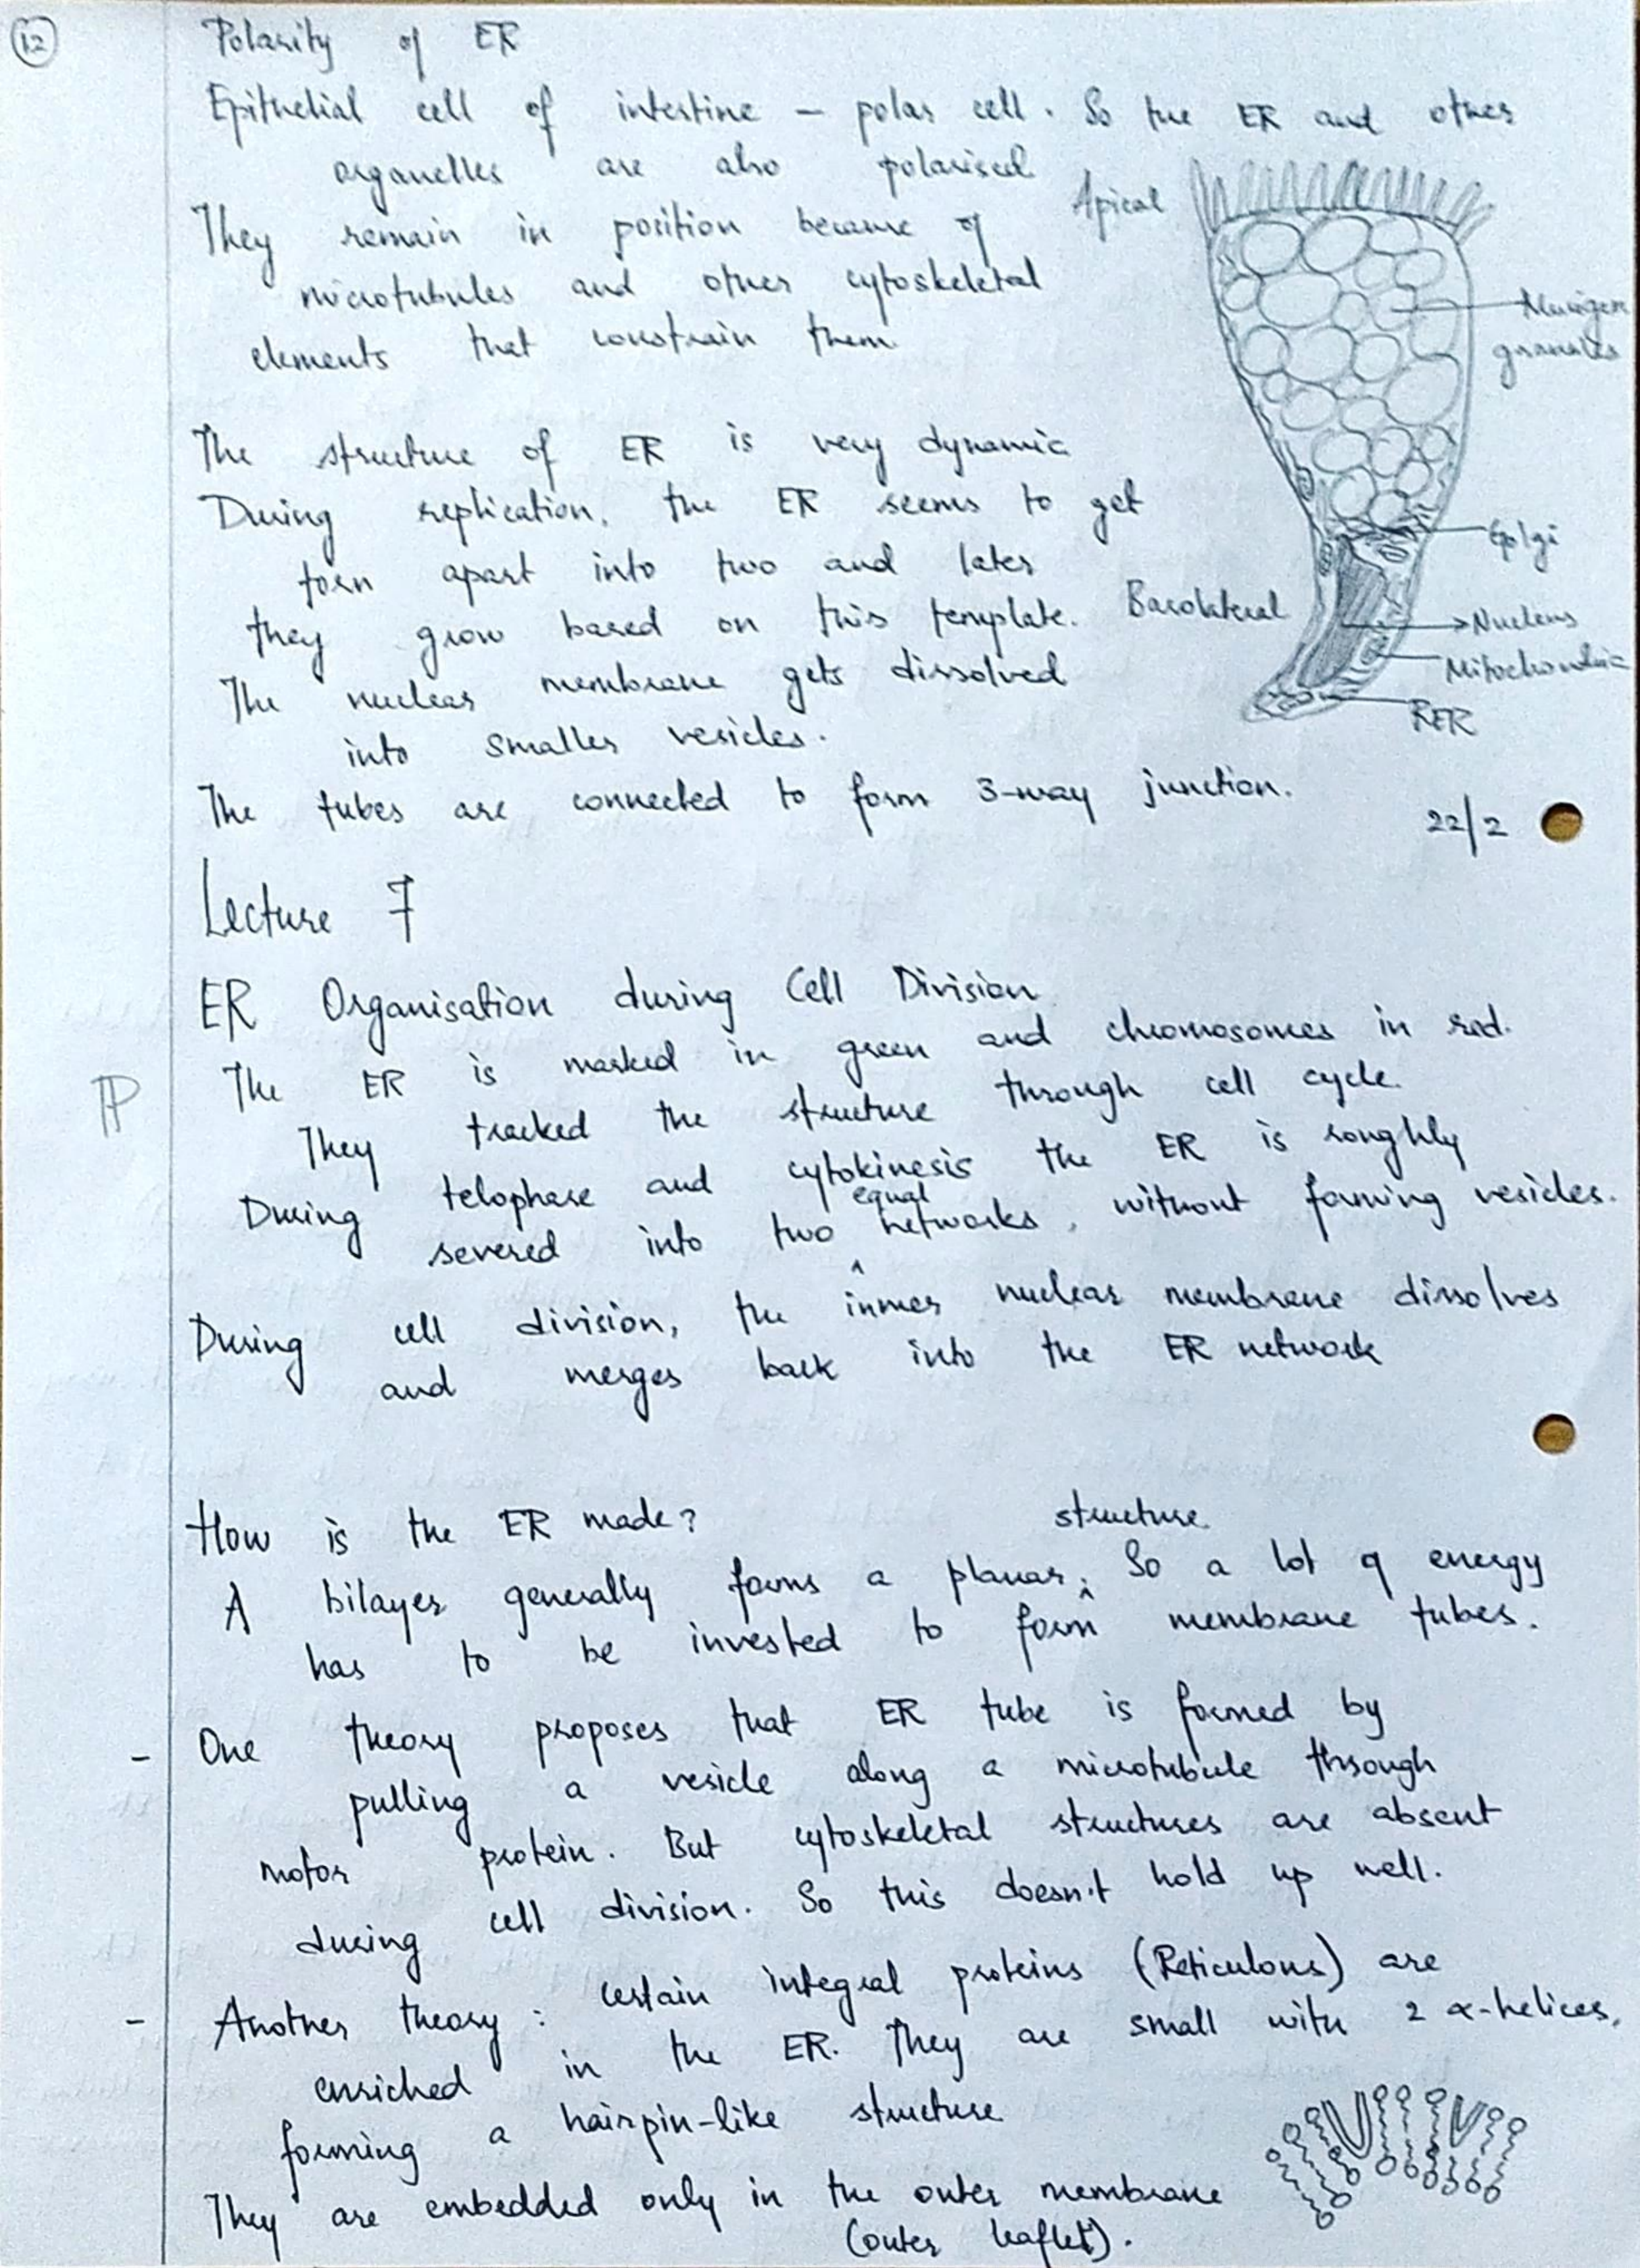 12
Polarity of ER
Epithelial cell of intestine – polar cell. So the ER and other
organelles are also polarised
They remain in position because of
microtubules and other cytoskeletal
elements that constrain them
Apical
Mucigen
granules
Golgi
Basolateral
Nucleus
Mitochondria
RER
The structure of ER is very dynamic
During replication, the ER seems to get
torn apart into two and later
they grow based on this template.
The nuclear membrane gets dissolved
into smaller vesicles.
The tubes are connected to form 3-way junction.
22/2
Lecture 7
ER Organisation during Cell Division
The ER is marked in green and chromosomes in red.
They tracked the structure through cell cycle.
During telophase and cytokinesis the ER is roughly
severed into two equal networks, without forming vesicles.
During cell division, the inner nuclear membrane dissolves
and merges back into the ER network
How is the ER made?
A bilayer generally forms a planar structure. So a lot of energy
has to be invested to form membrane tubes.
- One theory proposes that ER tube is formed by
pulling a vesicle along a microtubule through
motor protein. But cytoskeletal structures are absent
during cell division. So this doesn't hold up well.
- Another theory : certain integral proteins (Reticulons) are
enriched in the ER. They are small with 2 α-helices,
forming a hairpin-like structure
They are embedded only in the outer membrane
(outer leaflet).